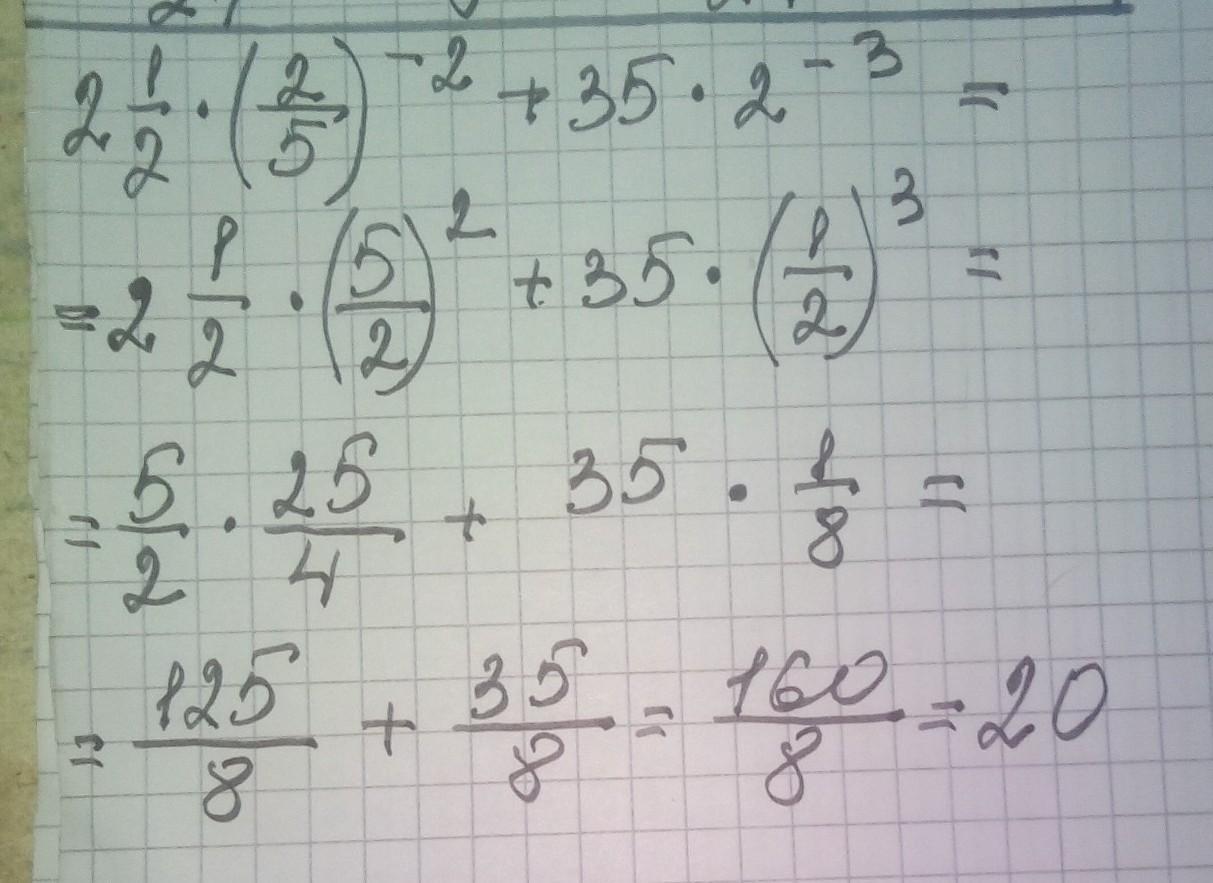 2 1/2 · (2/5)^-2 + 35 · 2^-3 =
= 2 1/2 · (5/2)^2 + 35 · (1/2)^3 =
= 5/2 · 25/4 + 35 · 1/8 =
= 125/8 + 35/8 = 160/8 = 20